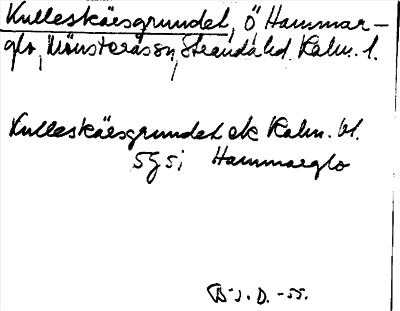 Kulleskärsgrundet, Ö Hammar-
glo, Mönsterås sn, Stranda hd. Kalm. l.
Kulleskärsgrundet ek Kalm. bl.
5g5i Hammarglo
B.J.D. -55.